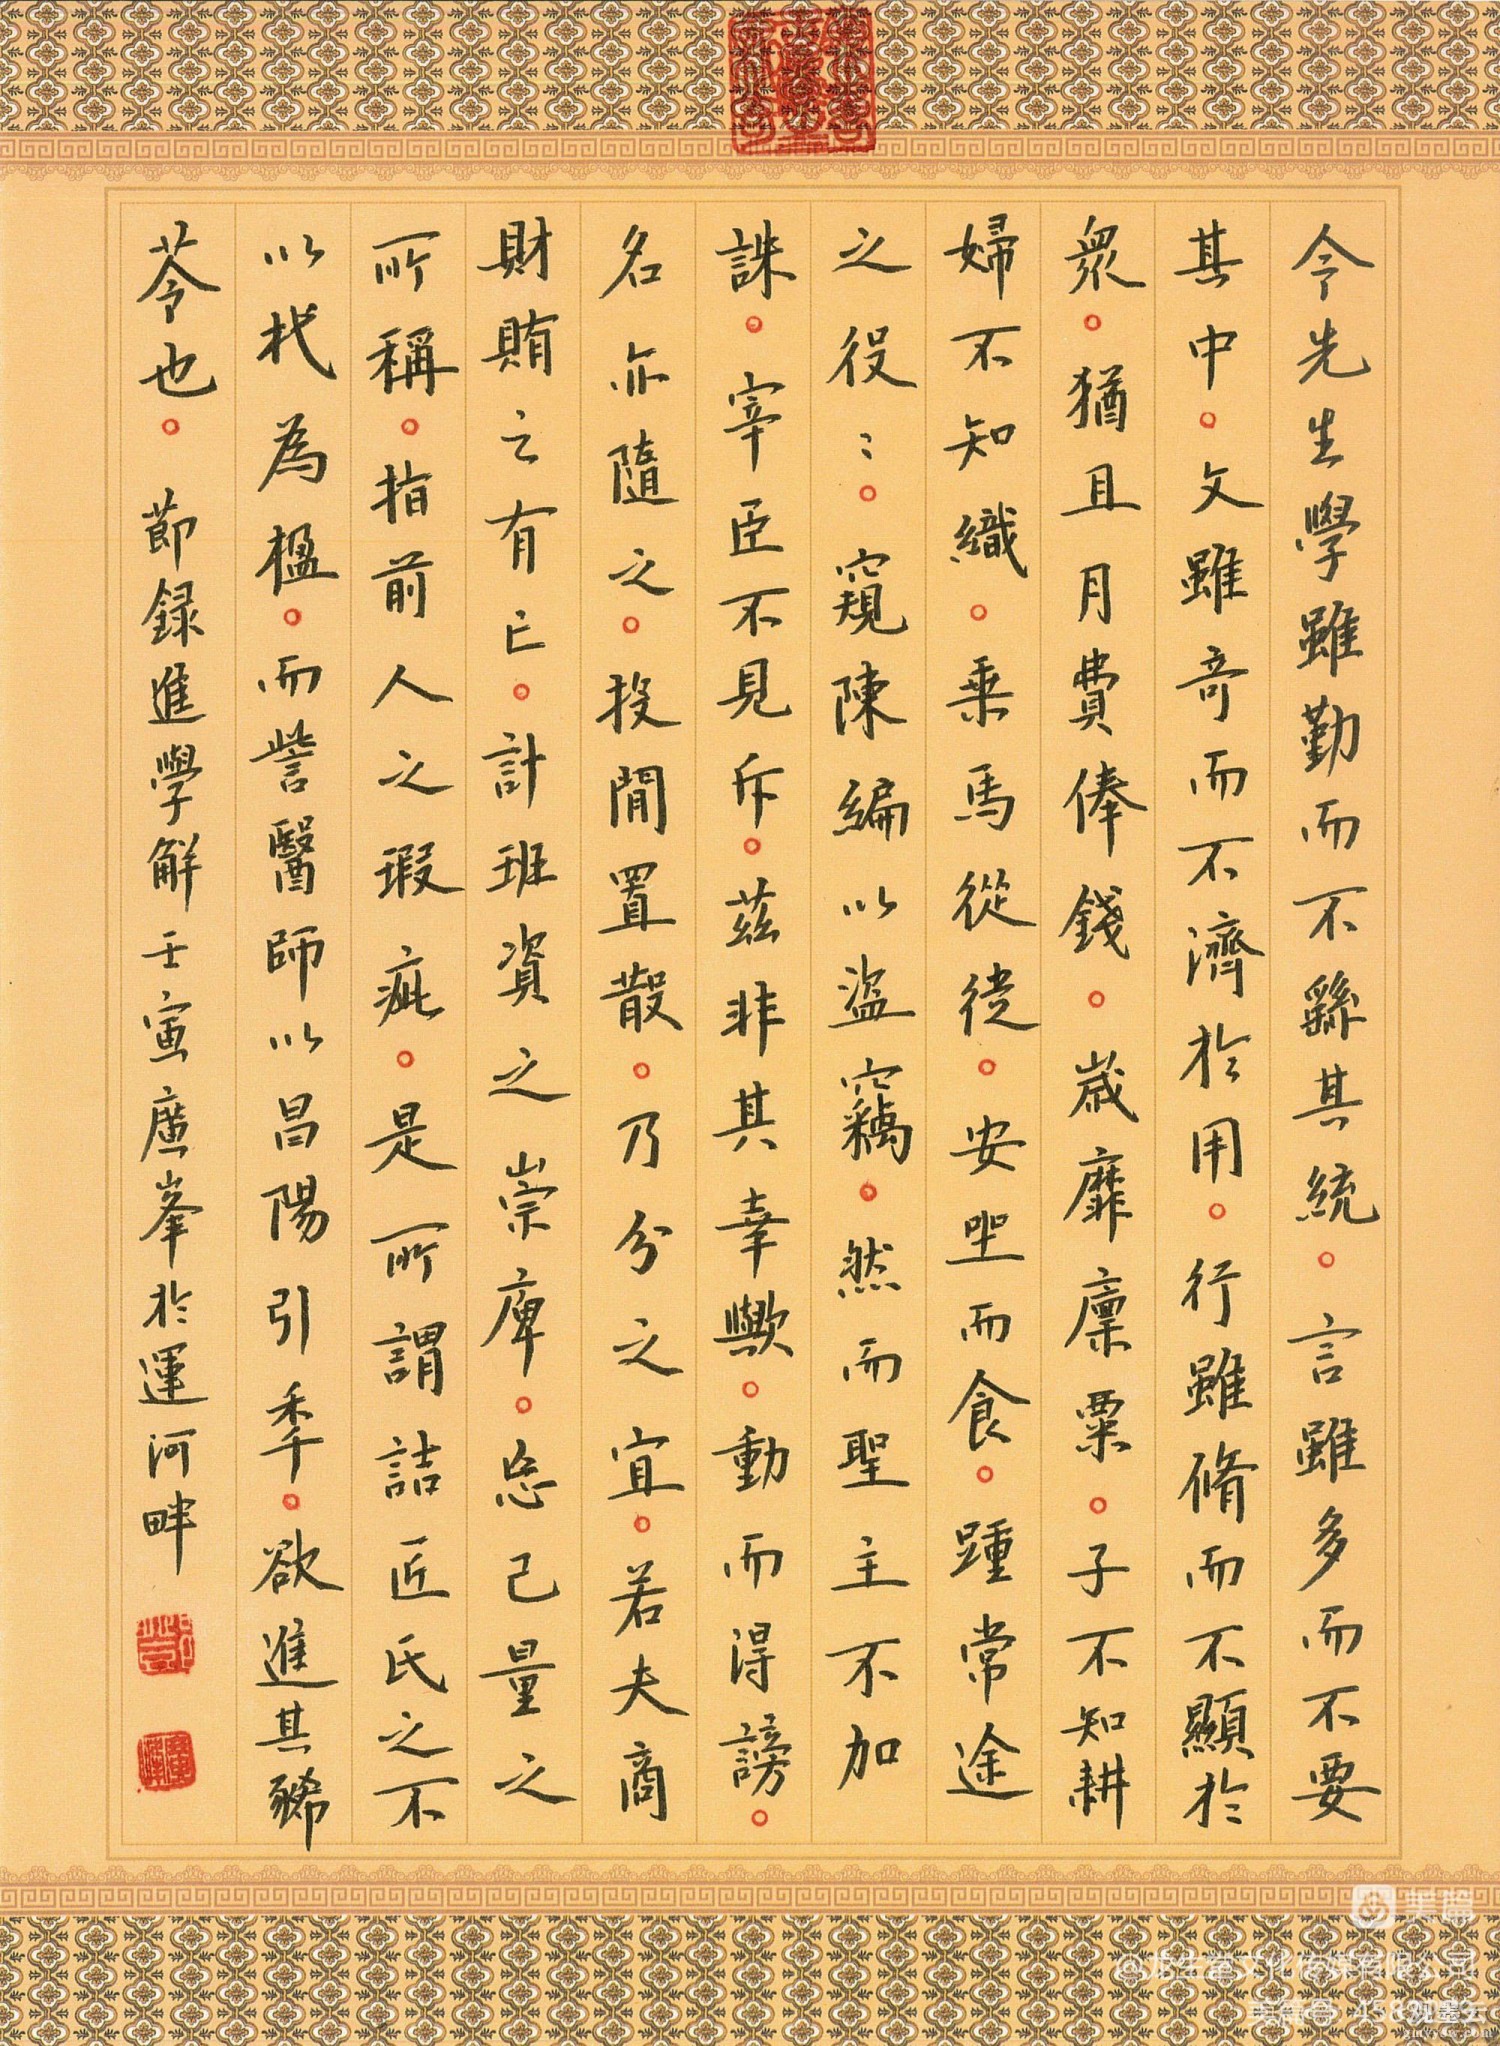 令先生學雖勤而不繇其統。言雖多而不要
其中。文雖奇而不濟於用。行雖脩而不顯於
衆。猶且月費俸錢。歲靡廩粟。子不知耕
婦不知織。乘馬從徒。安坐而食。踵常途
之役〻。窺陳編以盜竊。然而聖主不加
誅。宰臣不見斥。茲非其幸歟。動而得謗。
名亦隨之。投閒置散。乃分之宜。若夫商
財賄之有亡。計班資之崇庳。忘己量之
所稱。指前人之瑕疵。是所謂詰匠氏之不
以杙為楹。而訾醫師以昌陽引秊。欲進其豨
苓也。 節録進學解壬寅廣峯於運河畔
美篇
@龙生堂文化传媒有限公司